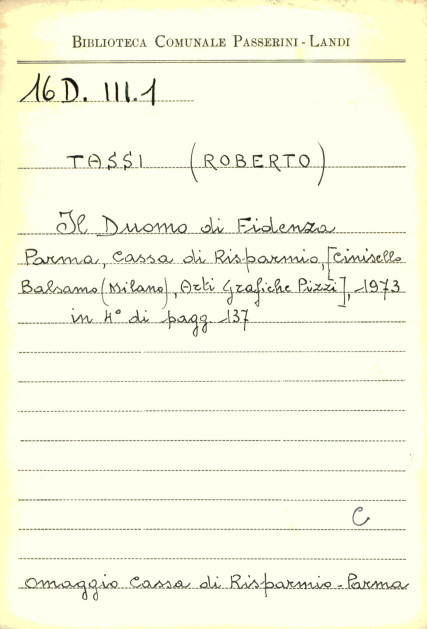 BIBLIOTECA COMUNALE PASSERINI - LANDI
16 D. III.1
TASSI (ROBERTO)
Il Duomo di Fidenza
Parma, Cassa di Risparmio, [Cinisello
Balsamo (Milano), Arti Grafiche Pizzi], 1973
in 4° di pagg. 137
C
omaggio Cassa di Risparmio - Parma